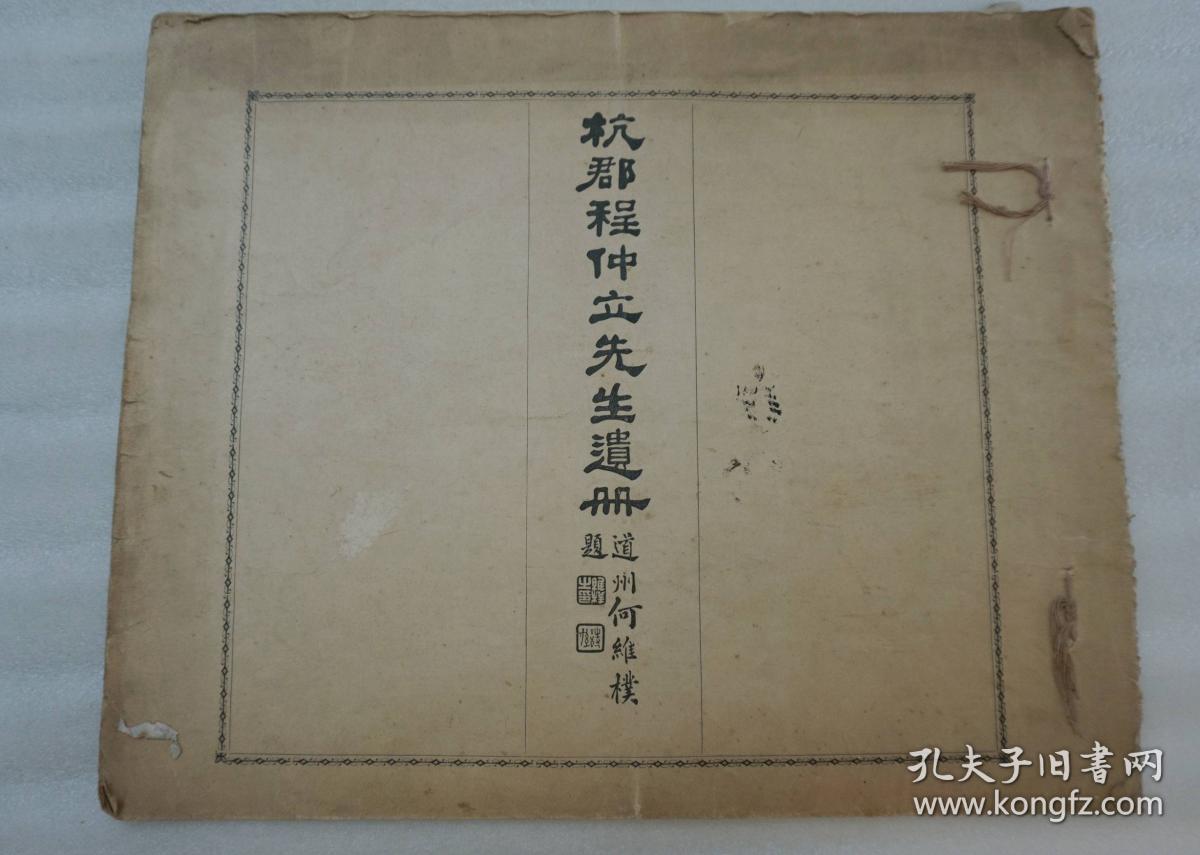 杭郡程仲立先生遺册
道州何維樸
題
孔夫子旧書网
www.kongfz.com